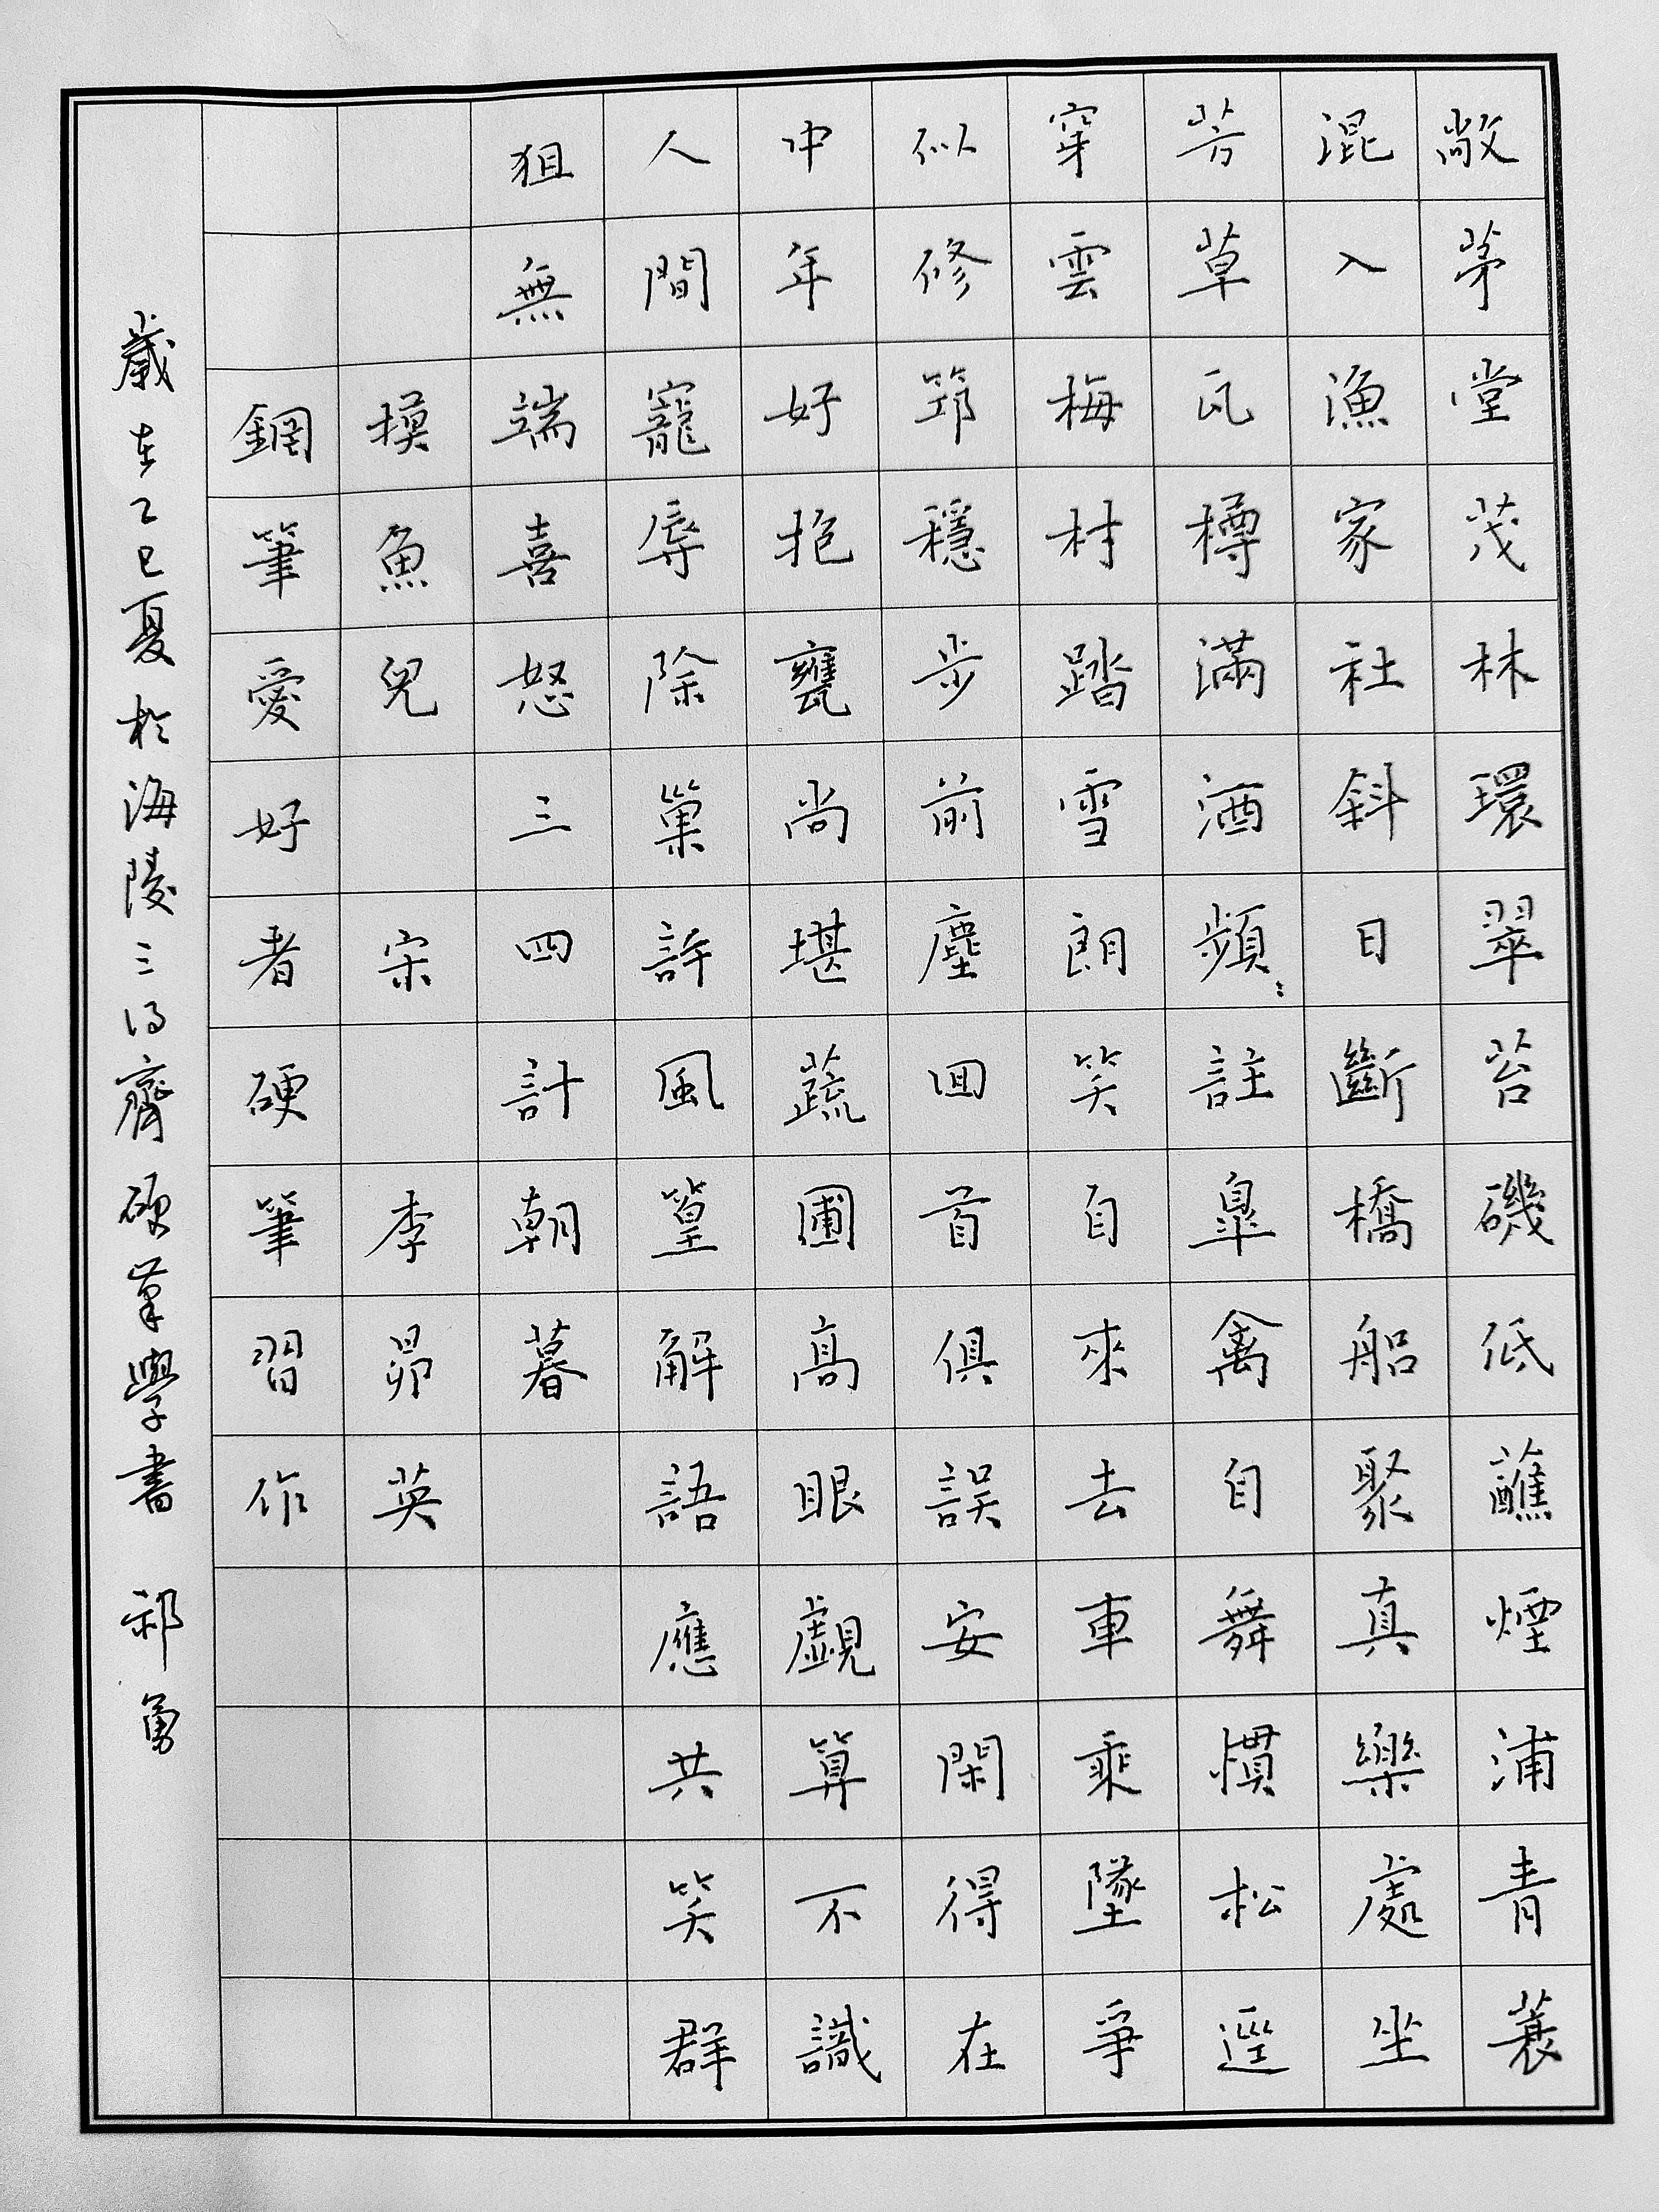 敞茅堂茂林環翠苔磯低蘸煙浦青蓑
混入漁家社斜日斷橋船聚真樂處坐
芳草瓦樽滿酒頻〻註皐禽自舞慣松逕
穿雲梅村踏雪朗笑自來去車乘墜爭
似修筇穩步前塵回首俱誤安閑得在
中年好抱甕尚堪蔬圃高眼覷算不識
人間寵辱除巢許風篁解語應共笑群
狙無端喜怒三四計朝暮
摸魚兒 宋 李昴英
鋼筆愛好者硬筆習作
歲在乙巳夏於海陵三得齋硬筆學書 祁勇